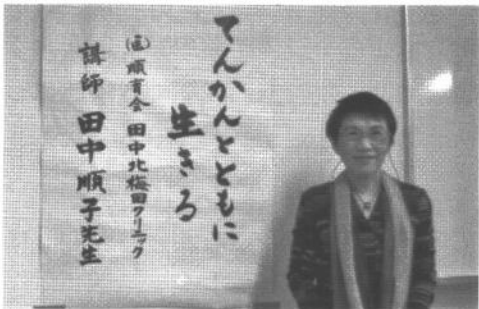 てんかんとともに
生きる
(医)順育会 田中北梅田クリニック
講師 田中順子先生